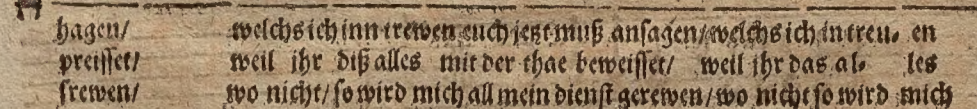 hagen/ welchs ich inn trewen euch jetzt muß ansagen/welchs ich in treu. en
preisset/ weil ihr diß alles mit der thae beweisset/ weil ihr das al. les
frewen/ wo nicht/ so wird mich all mein dienst gerewen/wo nicht so wird mich